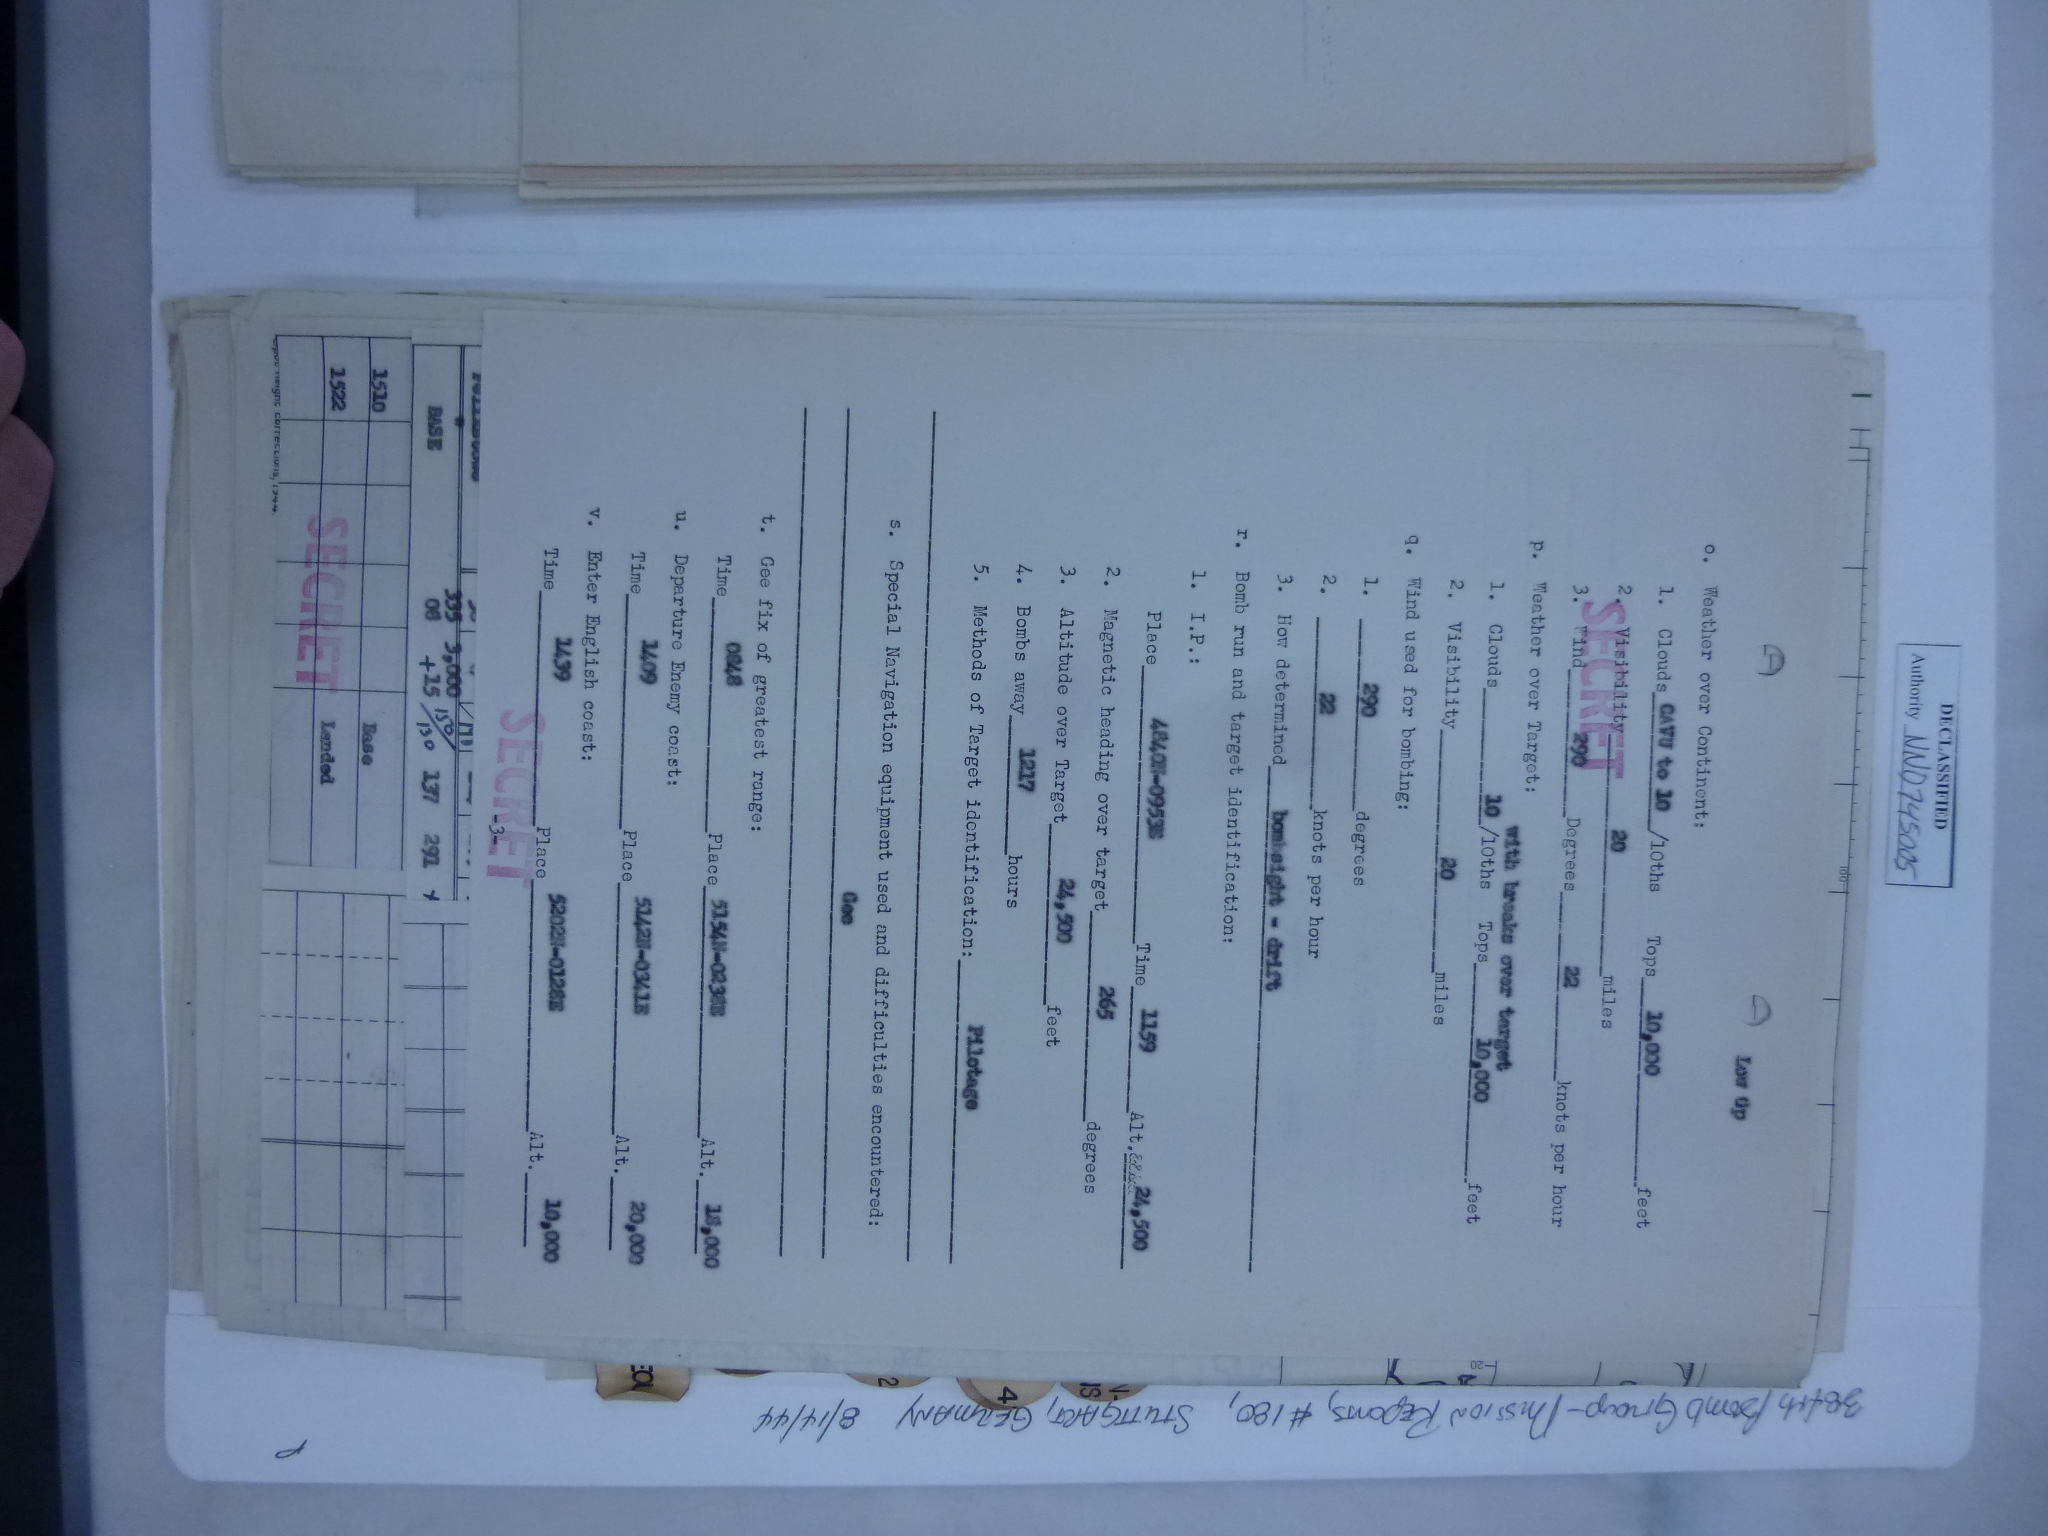 DECLASSIFIED
Authority NND745005
Low Gp
o. Weather over Continent:
1. Clouds CAVU to 10 /10ths Tops 10,000 feet
2. Visibility 20 miles
3. Wind 290 Degrees 22 knots per hour
SECRET
p. Weather over Target:
with breaks over target
1. Clouds 10 /10ths Tops 10,000 feet
2. Visibility 20 miles
q. Wind used for bombing:
1. 290 degrees
2. 22 knots per hour
3. How determined bombsight - drift
r. Bomb run and target identification:
1. I.P.:
Place 4840N-0953E Time 1159 Alt. 24,500
2. Magnetic heading over target 265 degrees
3. Altitude over Target 24,500 feet
4. Bombs away 1217 hours
5. Methods of Target identification: Pilotage
s. Special Navigation equipment used and difficulties encountered:
Gee
t. Gee fix of greatest range:
Time 0848 Place 5154N-0238E Alt. 18,000
u. Departure Enemy coast:
Time 1409 Place 5142N-0341E Alt. 20,000
v. Enter English coast:
Time 1439 Place 5202N-0128E Alt. 10,000
-3-
SECRET
335 5,000 150
BASE 08 +15 130 137 291
1510 Base
1522 Landed
SECRET
corrections, 1944.
384th Bomb Group - Mission Reports, #180, STUTTGART, GERMANY 8/14/44